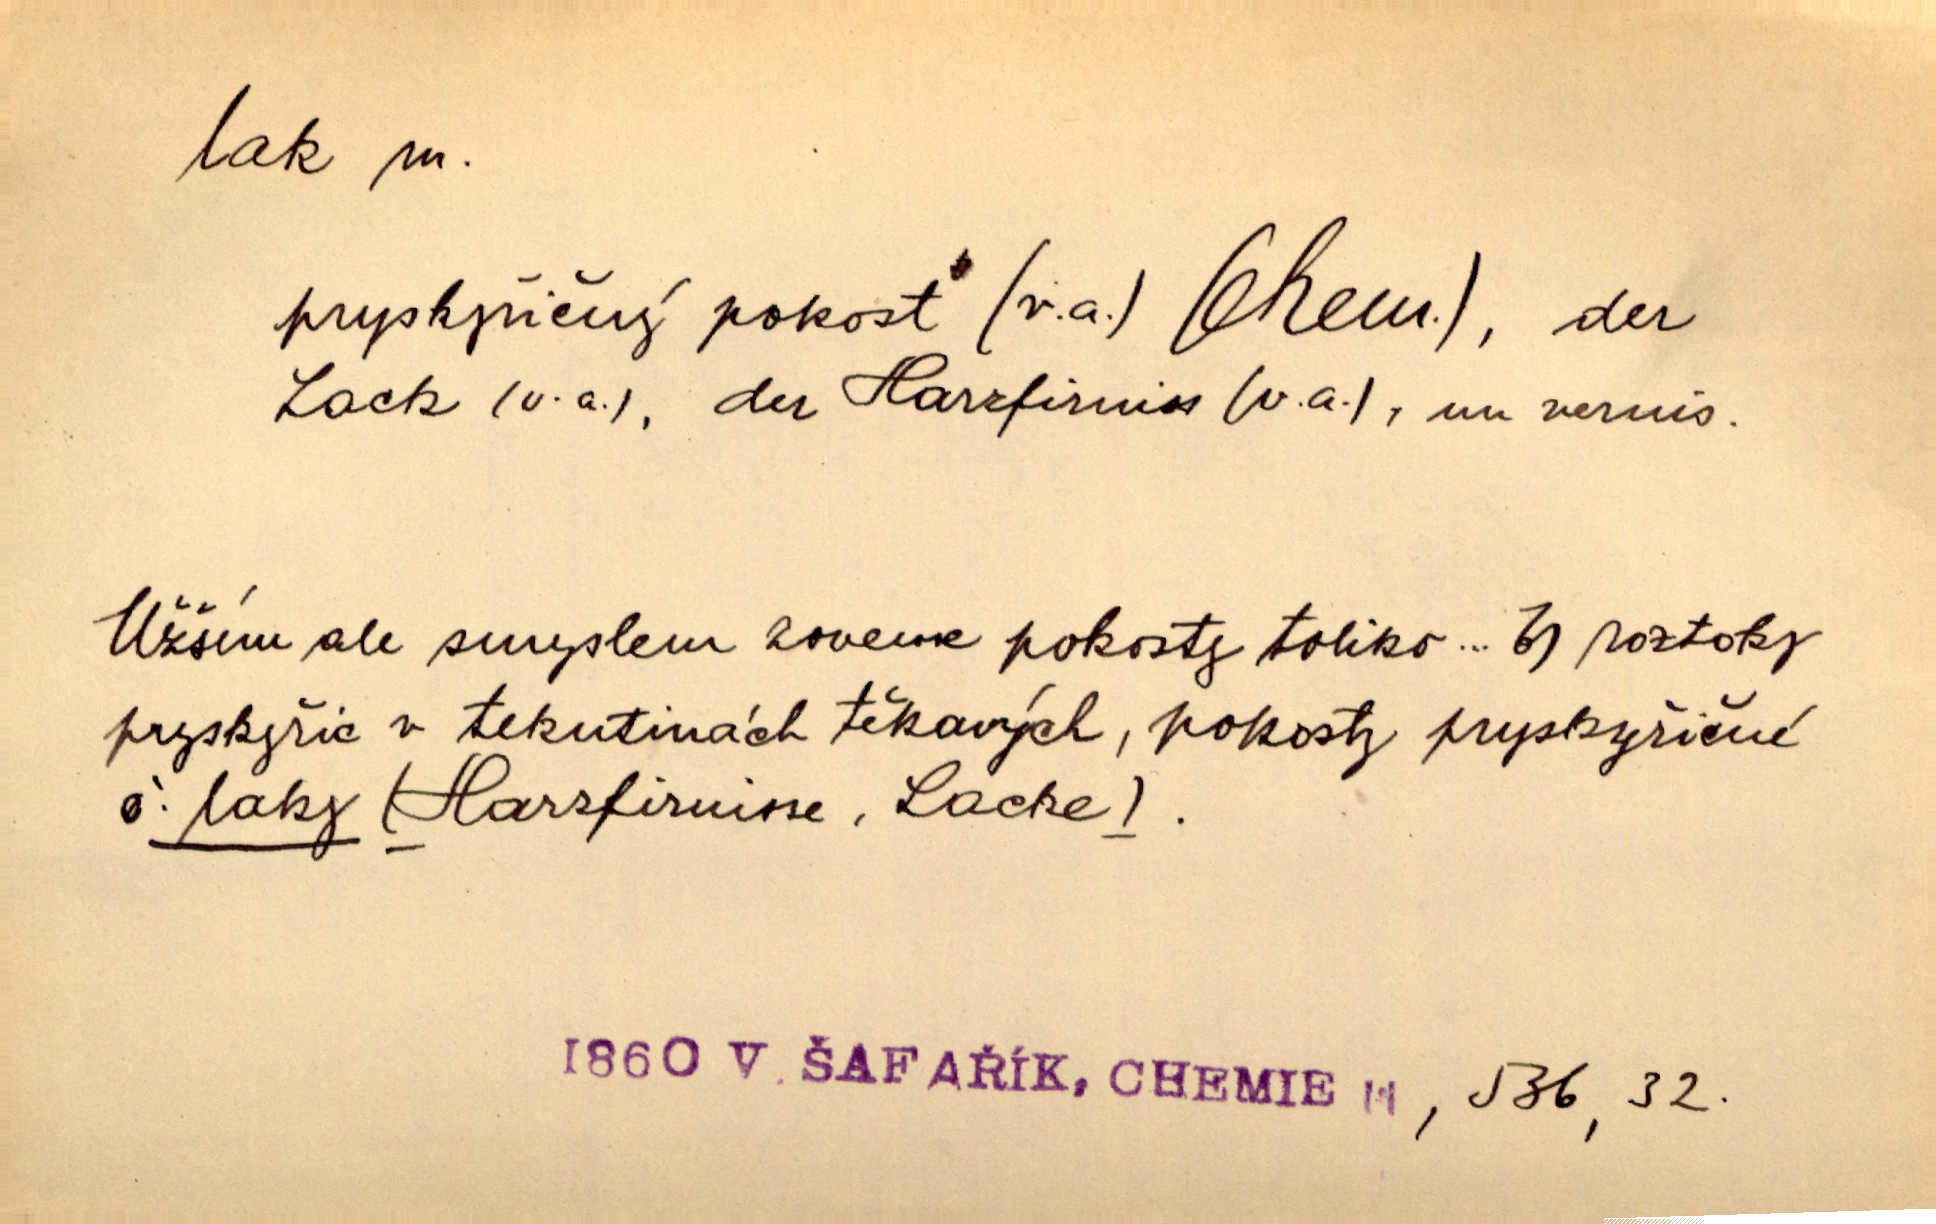 lak m.
pryskyřičný pokost (v.a.) (Chem.), der
Lack (v.a.), der Harzfirniss (v.a.), un vernis.
Užším ale smyslem zoveme pokosty toliko ... b) roztoky
pryskyřic v tekutinách těkavých, pokosty pryskyřičné
č. laky (Harzfirnisse, Lacke).
1860 V. ŠAFAŘÍK, CHEMIE , 536, 32.